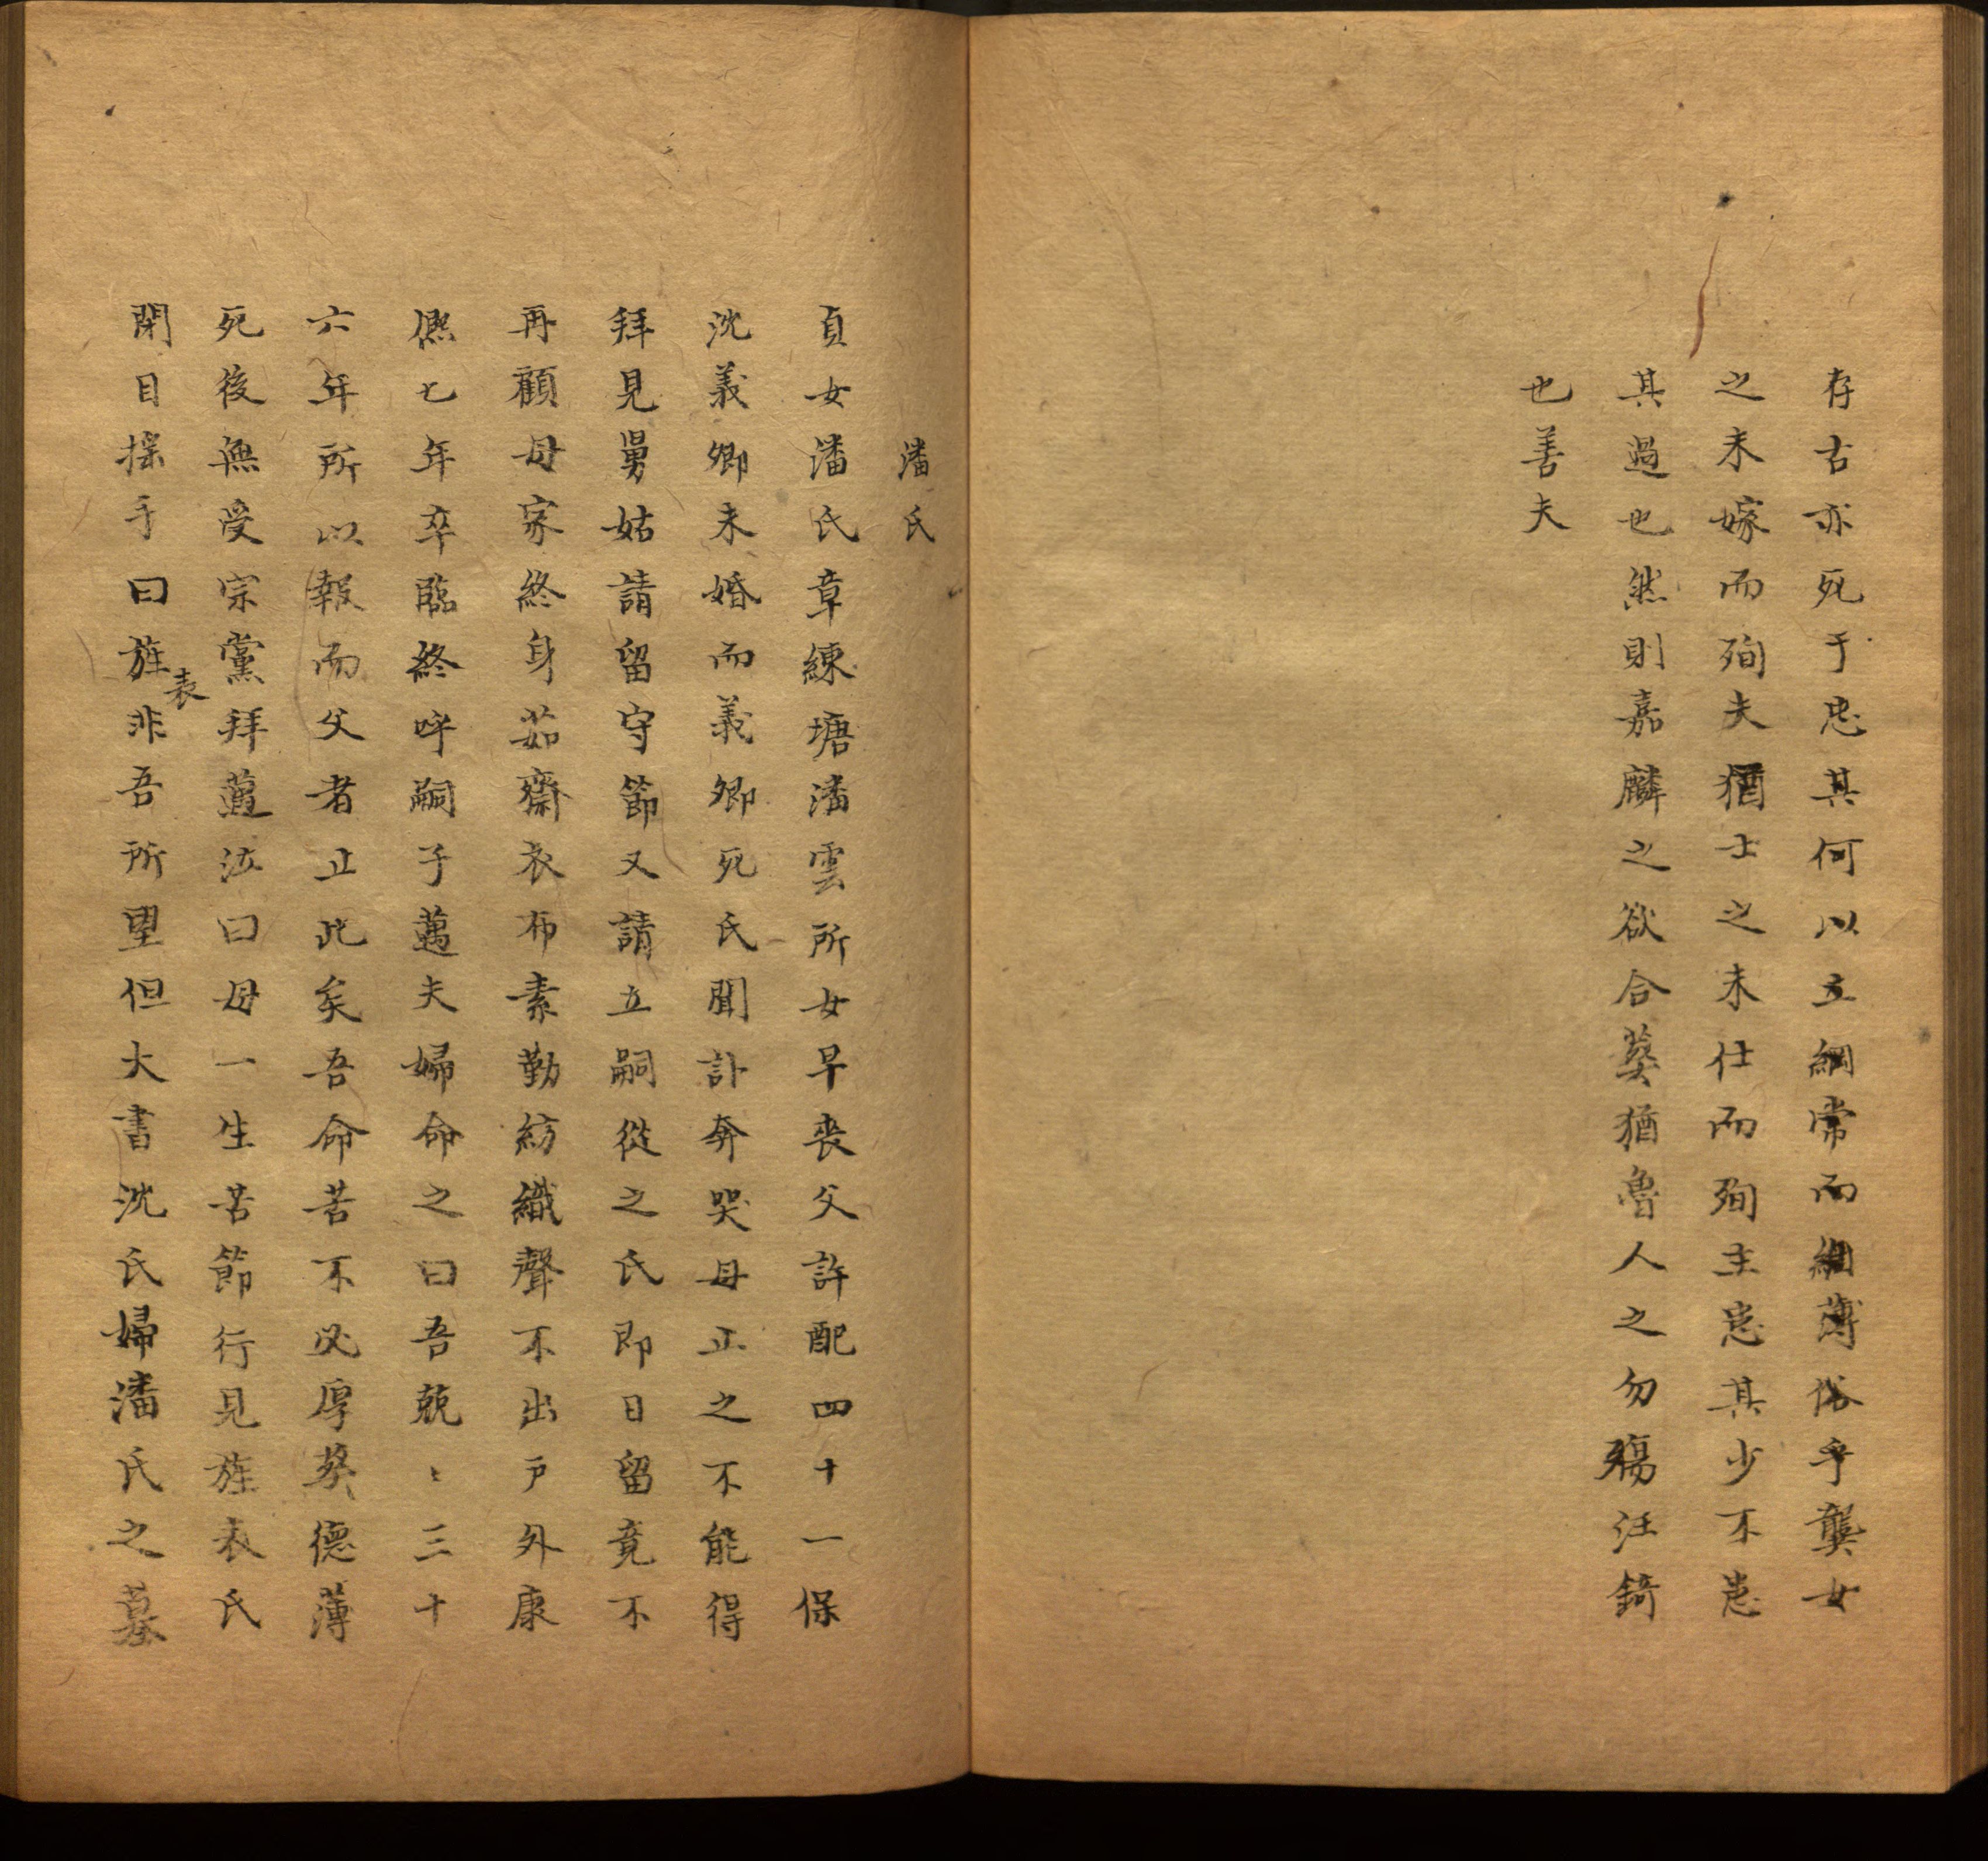 存古亦死于忠其何以立綱常而維薄俗乎龔女
之未嫁而殉夫猶士之未仕而殉主患其少不患
其過也然則嘉麟之欲合葬猶魯人之勿殤汪錡
也善夫
潘氏
貞女潘氏章練塘潘雲所女早喪父許配四十一保
沈義卿未婚而義卿死氏聞訃奔哭母止之不能得
拜見舅姑請留守節又請立嗣從之氏即日留竟不
再顧母家終身茹齋衣布素勤紡織聲不出戶外康
熙七年卒臨終呼嗣子薖夫婦命之曰吾兢〻三十
六年所以報而父者止此矣吾命苦不必厚葬德薄
死後無受宗黨拜薖泣曰母一生苦節行見旌表氏
閉目搖手曰旌表非吾所望但大書沈氏婦潘氏之墓